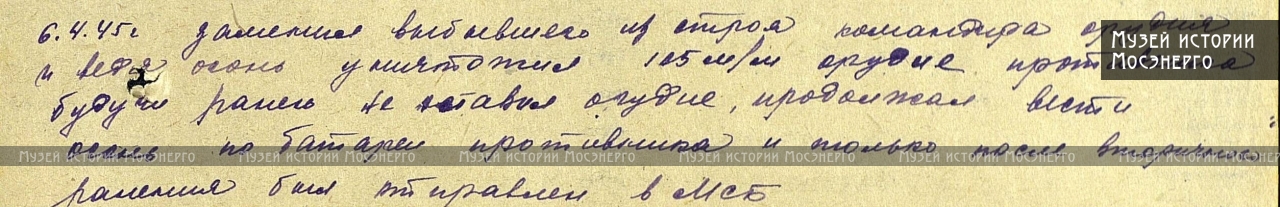 6.4.45г заменил выбывшего из строя командира орудия
МУЗЕЙ ИСТОРИИ
МОСЭНЕРГО
и ведя огонь уничтожил 105 м/м орудие противника
будучи ранен не оставил орудие, продолжал вести
огонь по батареи противника и только после вторичного
МУЗЕЙ ИСТОРИИ МОСЭНЕРГО МУЗЕЙ ИСТОРИИ МОСЭНЕРГО МУЗЕЙ ИСТОРИИ МОСЭНЕРГО МУЗЕЙ ИСТОРИИ МОСЭНЕРГО МУЗЕЙ ИСТОРИИ МОСЭНЕРГО
ранения был отправлен в МСБ